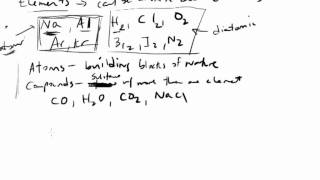 Elements -
Na, Al
Ar, Kr
H2, Cl2, O2
Br2, I2, N2
diatomic
Atoms - building blocks of nature
Compounds - substance w/ more than one element
CO, H2O, CO2, NaCl